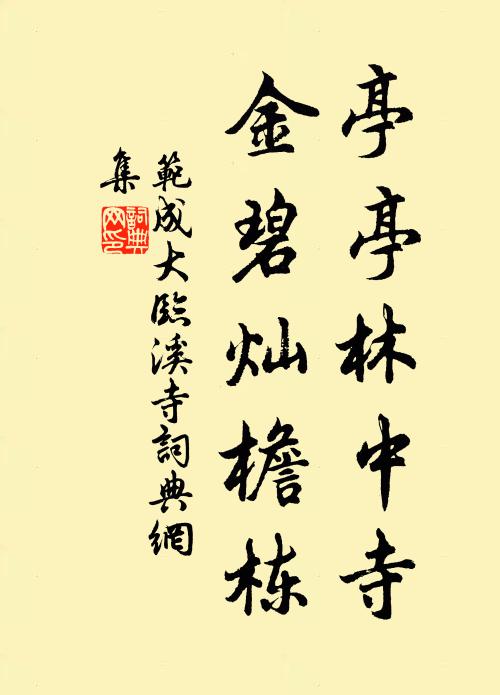 亭亭林中寺
金碧灿檐栋
範成大臨溪寺詞典網
集
詞典网印